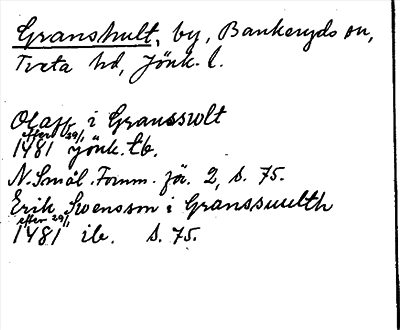 Granshult, by, Bankeryds sn,
Tveta hd, Jönk. l.
Olaff i Gransswlt
efter 29/1
1481 Jönk. tb.
N. Smål. Fornm. för. 2, s. 75.
Erik Swensson i Granssuulth
efter 29/1
1481 ib. s. 75.